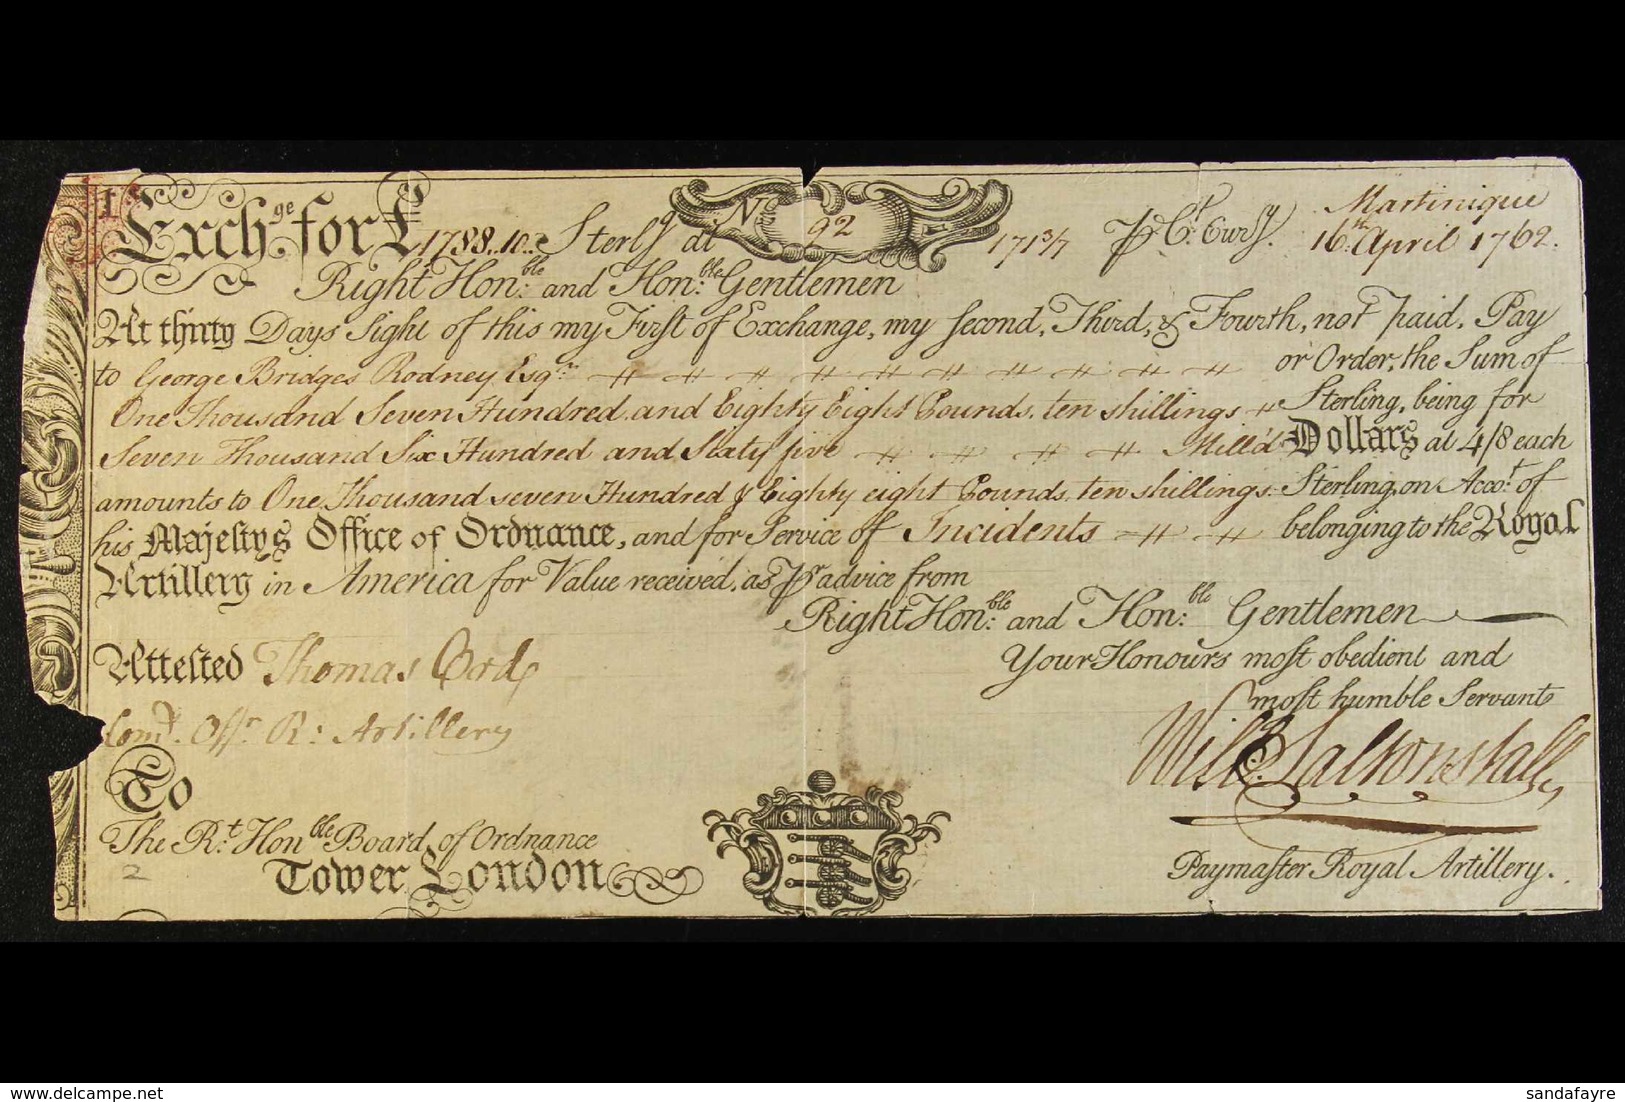 1
Exchge for £1788.10.. Sterlg at No 92 171 3/7 P Ct Curcy. Martinique
16th April 1762.
Right Honble: and Honble: Gentlemen
At thirty Days Sight of this my First of Exchange, my Second, Third, & Fourth, not Paid, Pay
to George Bridges Rodney Esqr. or Order, the Sum of
One Thousand Seven Hundred and Eighty Eight Pounds, ten shillings Sterling, being for
Seven Thousand Six Hundred and Sixty five Mill'd Dollars at 4/8 each
amounts to One Thousand seven Hundred & Eighty eight Pounds, ten shillings. Sterling, on Accot. of
his Majestys Office of Ordnance, and for Service of Incidents belonging to the Royal
Artillery in America for Value received, as Pr advice from
Right Honble: and Honble: Gentlemen
Your Honours most obedient and
most humble Servant
Attested Thomas Ord
Comd. Offr R: Artillery
Willm Saltonstall
To
The Rt. Honble Board of Ordnance
Tower London
Paymaster Royal Artillery.
2
www.delcampe.net
sandafayre